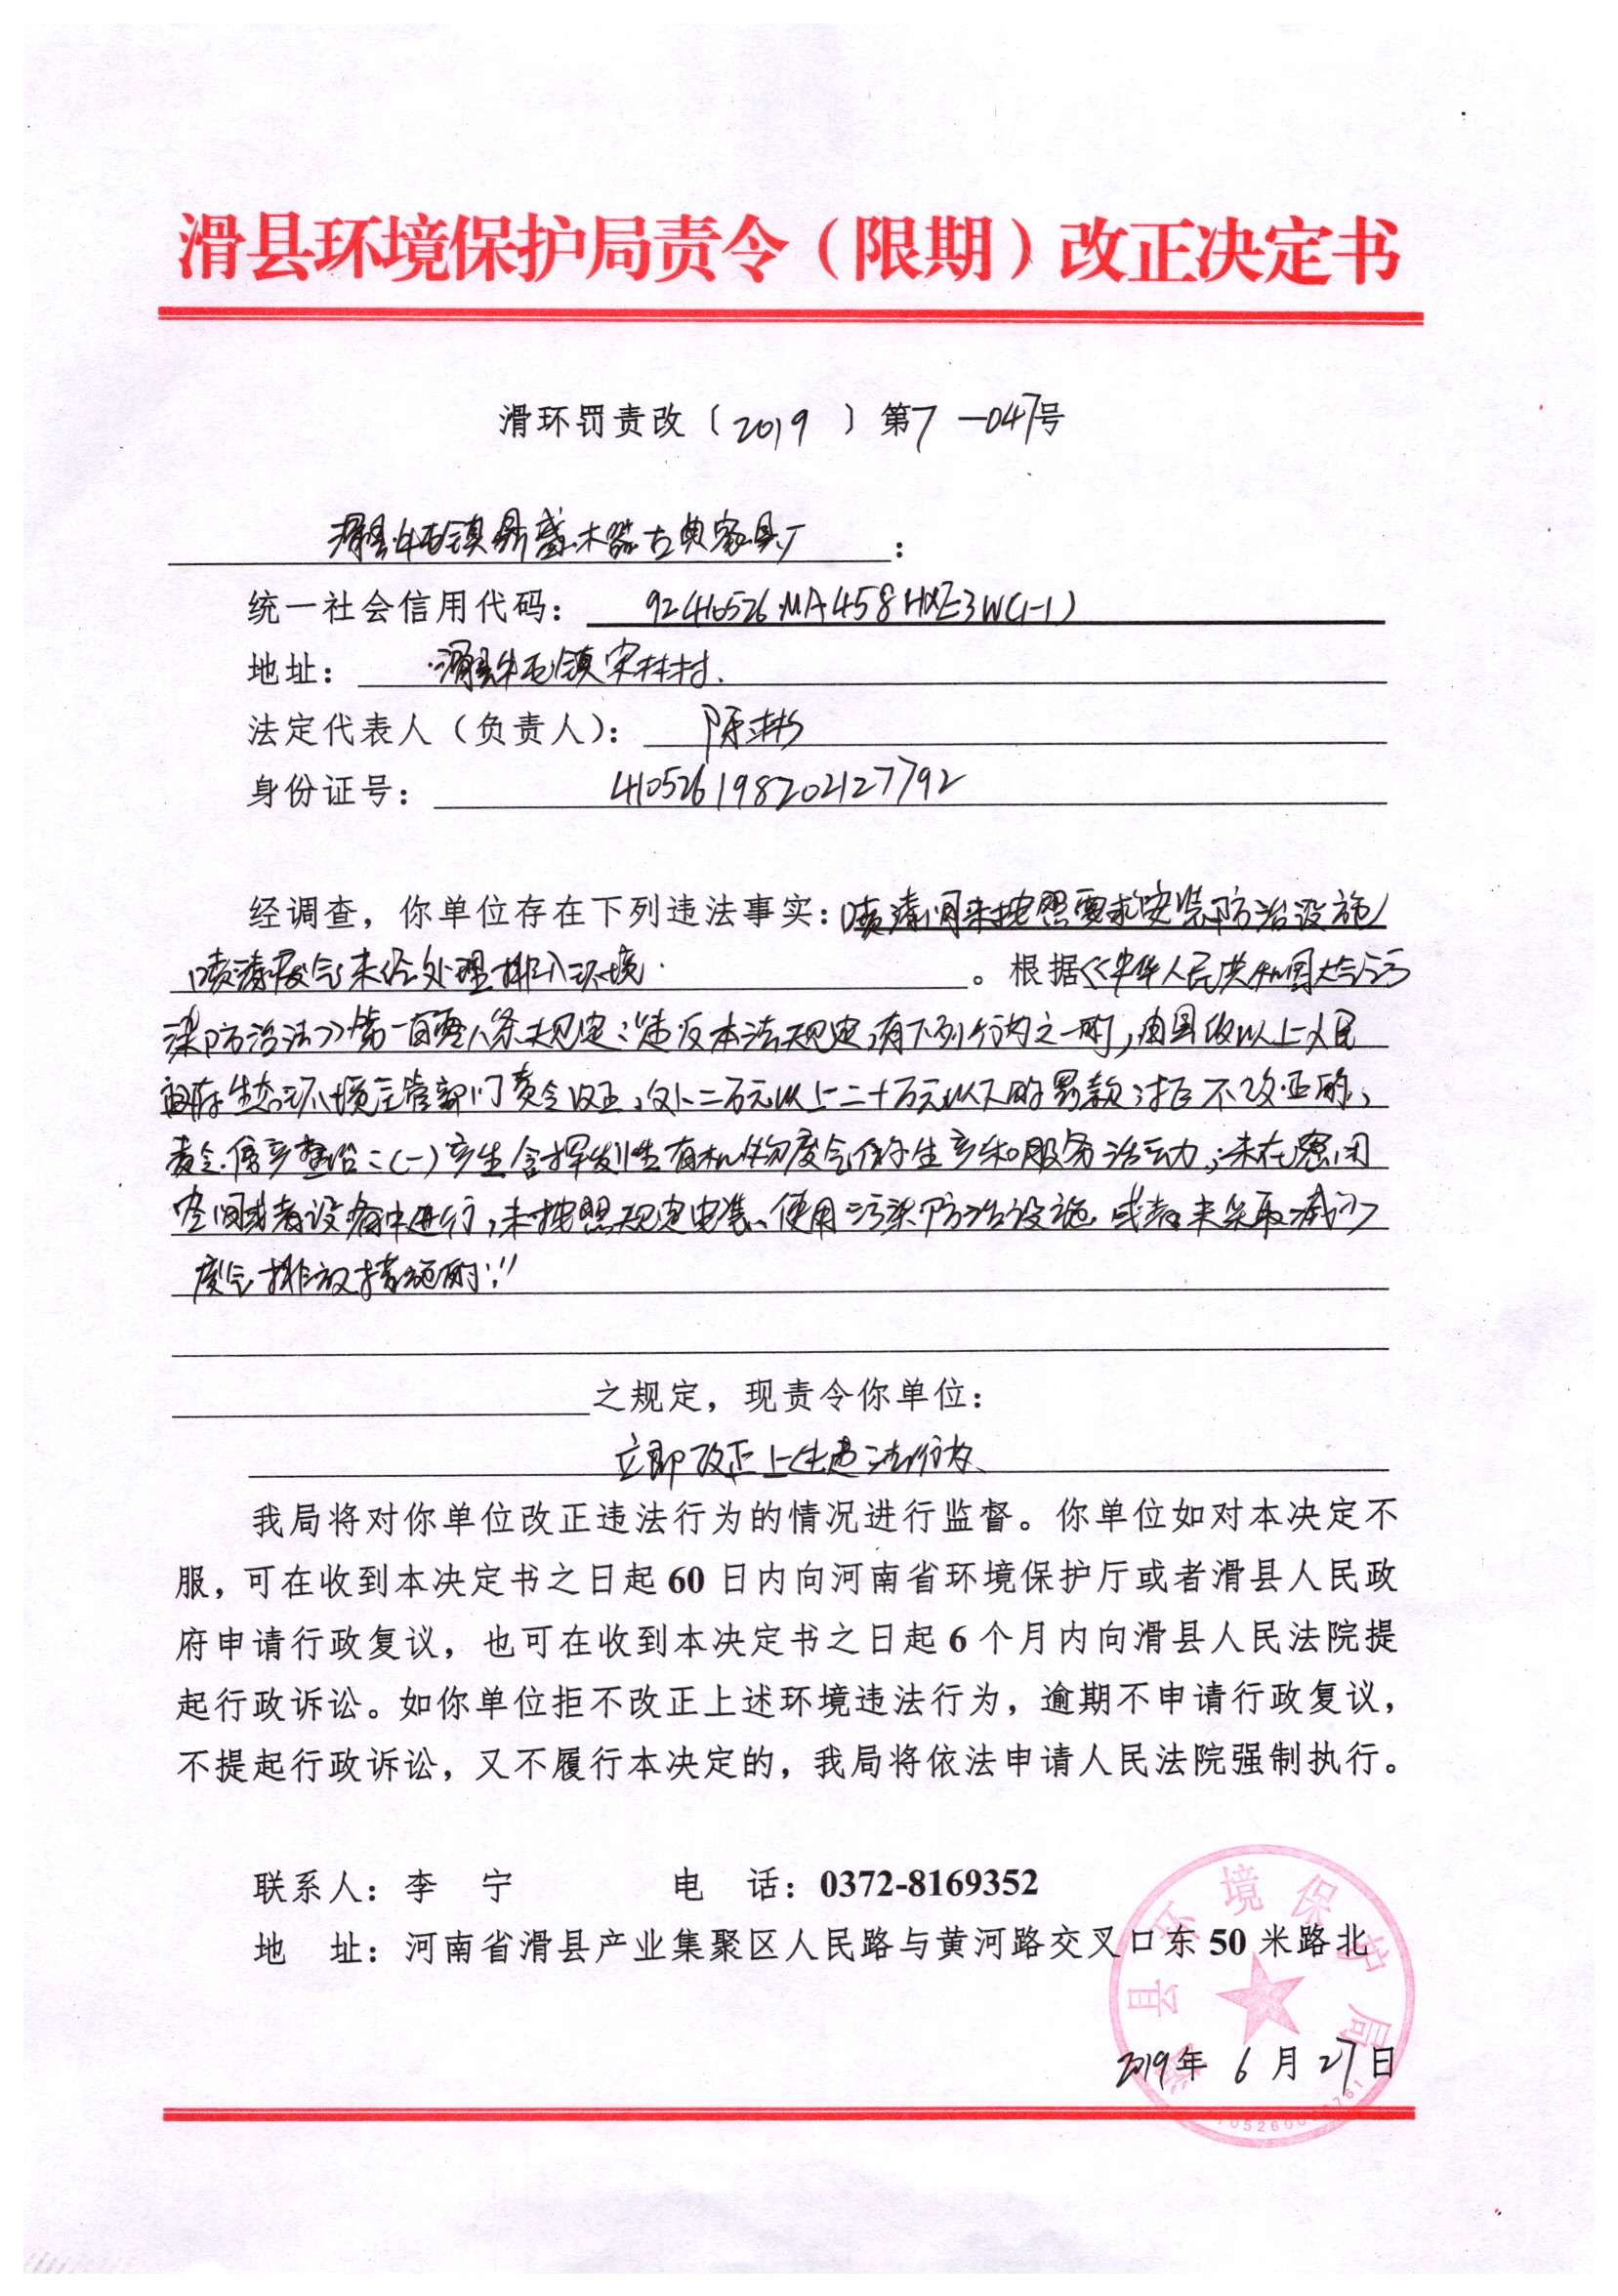 滑县环境保护局责令（限期）改正决定书
滑环罚责改〔2019〕第7-047号
滑县牛屯镇鼎盛木器古典家具厂：
统一社会信用代码：92410526MA458HXE3W(1-1)
地址：滑县牛屯镇宋林村
法定代表人（负责人）：陈彬
身份证号：410526198202127792
经调查，你单位存在下列违法事实：喷漆间未按照要求安装防治设施，
喷漆废气未经处理排入环境。根据《中华人民共和国大气污
染防治法》第一百零八条规定：“违反本法规定，有下列行为之一的，由县级以上人民
政府生态环境主管部门责令改正，处二万元以上二十万元以下的罚款；拒不改正的，
责令停产整治：（一）产生含挥发性有机物废气的生产和服务活动，未在密闭
空间或者设备中进行，未按照规定安装、使用污染防治设施，或者未采取减少
废气排放措施的；”
之规定，现责令你单位：
立即改正上述违法行为
我局将对你单位改正违法行为的情况进行监督。你单位如对本决定不
服，可在收到本决定书之日起60日内向河南省环境保护厅或者滑县人民政
府申请行政复议，也可在收到本决定书之日起6个月内向滑县人民法院提
起行政诉讼。如你单位拒不改正上述环境违法行为，逾期不申请行政复议，
不提起行政诉讼，又不履行本决定的，我局将依法申请人民法院强制执行。
联系人：李 宁 电 话：0372-8169352
地 址：河南省滑县产业集聚区人民路与黄河路交叉口东50米路北
滑县环境保护局
2019年6月27日